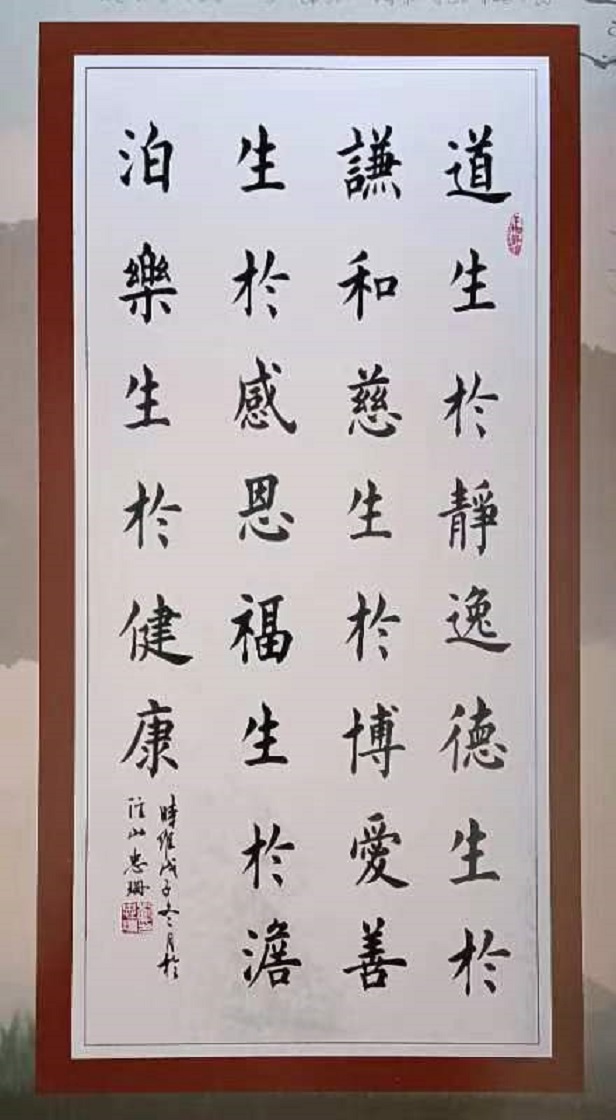 道生於靜逸德生於
謙和慈生於博愛善
生於感恩福生於澹
泊樂生於健康
時維戊子冬月於